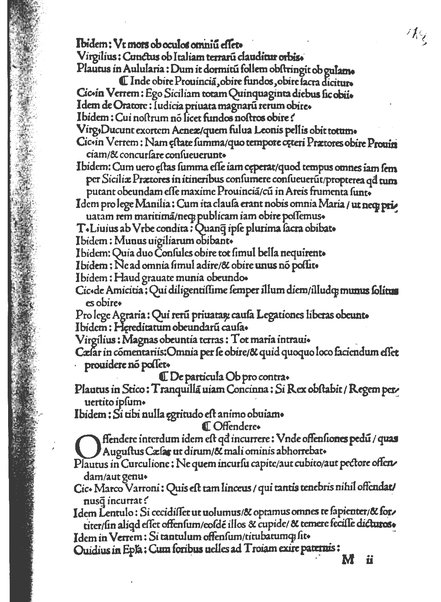 Ibidem: Vt mors ob oculos omniū esset.
Virgilius: Cunctus ob Italiam terrarū clauditur orbis.
Plautus in Aulularia: Dum it dormitū follem obstringit ob gulam.
¶ Inde obire Prouinciā, obire fundos, obire sacra dicitur.
Cic. in Verrem: Ego Siciliam totam Quinquaginta diebus sic obii.
Idem de Oratore: Iudicia priuata magnarū rerum obire.
Ibidem: Cui nostrum nō licet fundos nostros obire?
Virg. Ducunt exortem Aeneæ/quem fulua Leonis pellis obit totum.
Cic. in Verrem: Nam ęstate summa/quo tempore cęteri Prætores obire Prouin
ciam/& concursare consueuerunt.
Ibidem: Cum uero ęstas summa esse iam cęperat/quod tempus omnes iam sem
per Siciliæ Prætores in itineribus consumere consueuerūt/propterea qđ tum
putant obeundam esse maxime Prouinciā/cū in Areis frumenta sunt.
Idem pro lege Manilia: Cum ita clausa erant nobis omnia Maria/ut neq; pri/
uatam rem maritimā/neq; publicam iam obire possemus.
T. Liuius ab Vrbe condita: Quanq̄ ipse plurima sacra obibat.
Ibidem: Munus uigiliarum obibant.
Ibidem: Quia duo Consules obire tot simul bella nequirent.
Ibidem: Ne ad omnia simul adire/& obire unus nō possit.
Ibidem: Haud grauate munia obeundo.
Cic. de Amicitia: Qui diligentissime semper illum diem/illudq; munus solitus
es obire.
Pro lege Agraria: Qui rerū priuataꝝ causa Legationes liberas obeunt.
Ibidem: Hęreditatum obeundarū causa.
Virgilius: Magnas obeuntia terras: Tot maria intraui.
Cæsar in cōmentariis: Omnia per se obire/& quid quoquo loco faciendum esset
prouidere nō posset.
¶ De particula Ob pro contra.
Plautus in Stico: Tranquillā uiam Concinna: Si Rex obstabit/Regem per/
uertito ipsum.
Ibidem: Si tibi nulla ęgritudo est animo obuiam.
¶ Offendere.
Offendere interdum idem est qđ incurrere: Vnde offensiones pedū/quas
Augustus Cæsar ut dirum/& mali ominis abhorrebat.
Plautus in Curculione: Ne quem incursu capite/aut cubito/aut pectore offen/
dam/aut genu.
Cic. Marco Varroni: Quis est tam linceus/qui tantis tenebris nihil offendat/
nusq̄ incurrat?
Idem Lentulo: Si cecidisset ut uolumus/& optamus omnes te sapienter/& for/
titer/sin aliqd esset offensum/eosdē illos & cupide/& temere fecisse dicturos.
Idem in Verrem: Si tantulum offensum/titubatumq; sit.
Ouidius in Epł̄a: Cum foribus uelles ad Troiam exire paternis:
M ii